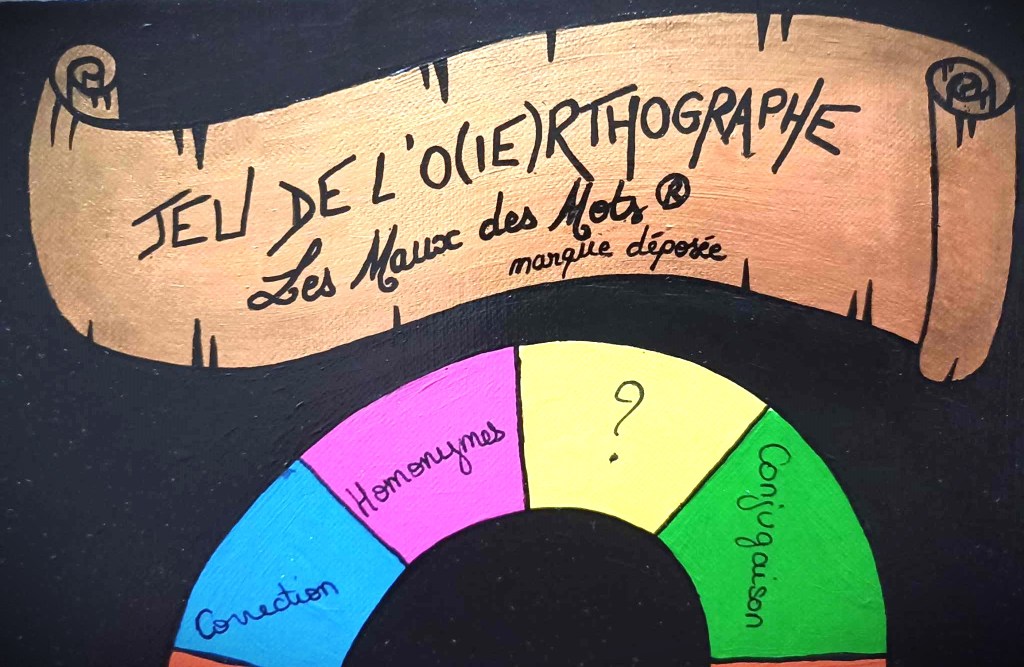 JEU DE L'O(IE)RTHOGRAPHE
Les Maux des Mots ®
marque déposée
?
Homonymes
Conjugaison
Correction